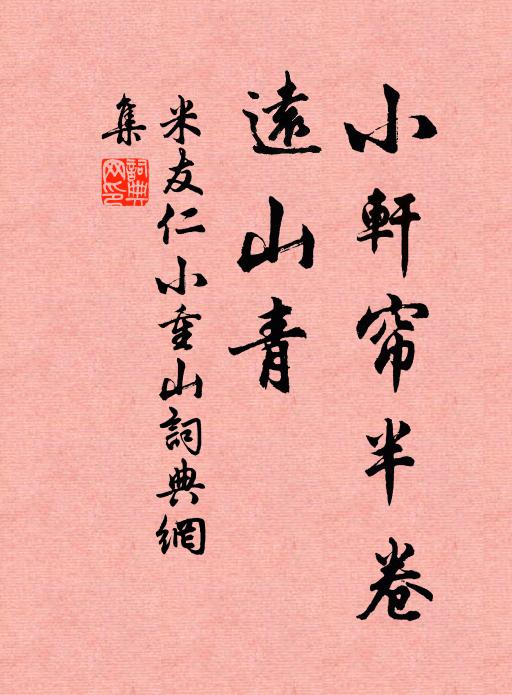 小軒帘半卷
遠山青
米友仁小重山詞典網
集
詞典网印